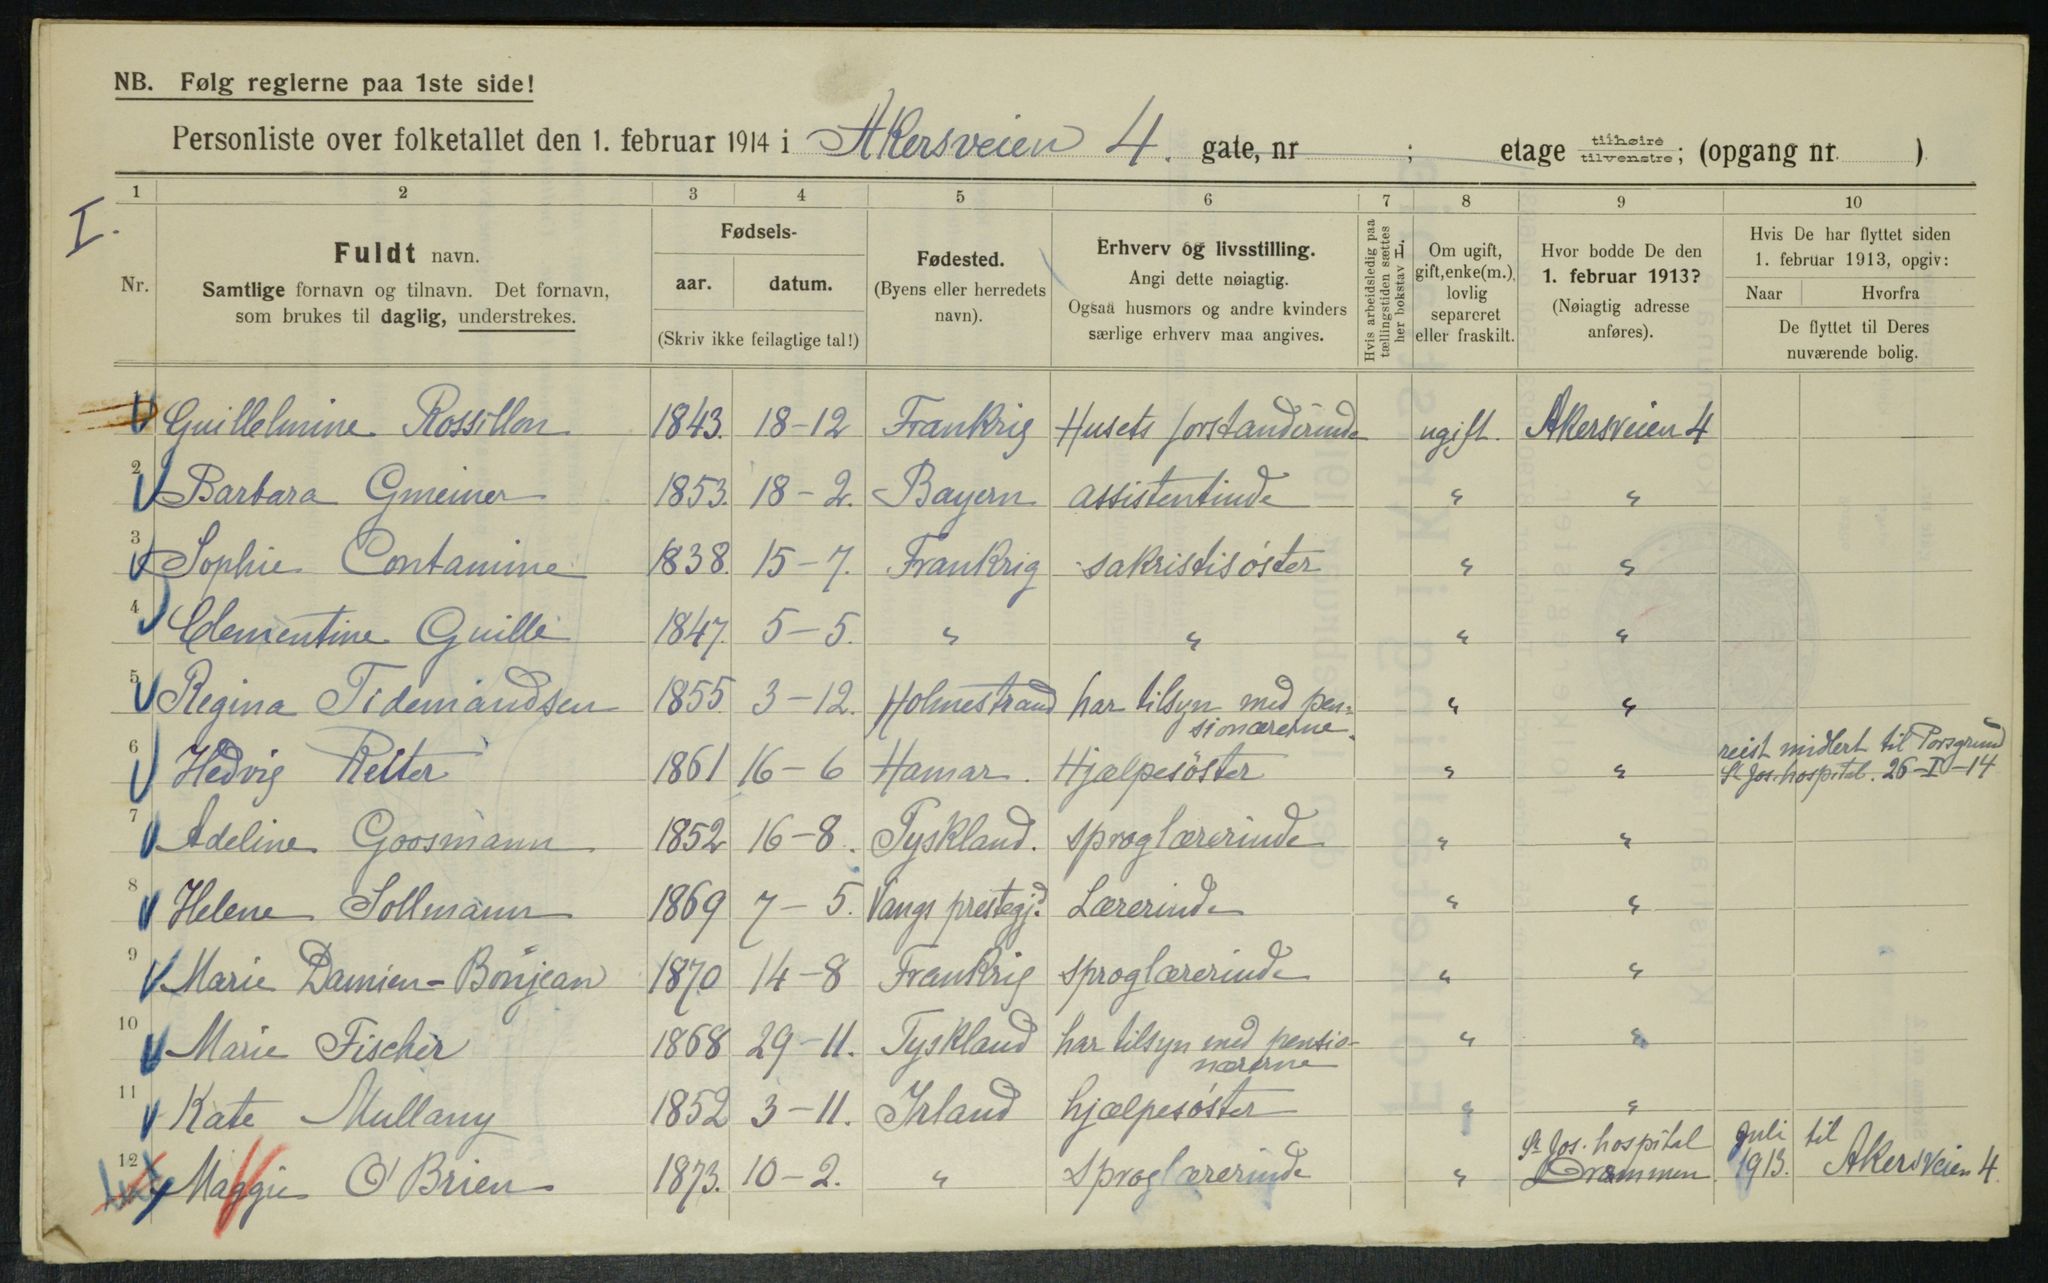 NB. Følg reglerne paa 1ste side!
Personliste over folketallet den 1. februar 1914 i Akersveien 4. gate, nr ; etage tilhøire tilvenstre; (opgang nr )
I.
1 2 3 4 5 6 7 8 9 10
Nr.
Fuldt navn.
Samtlige fornavn og tilnavn. Det fornavn,
som brukes til daglig, understrekes.
Fødsels-
aar. datum.
(Skriv ikke feilagtige tal!)
Fødested.
(Byens eller herredets
navn).
Erhverv og livsstilling.
Angi dette nøiagtig.
Ogsaa husmors og andre kvinders
særlige erhverv maa angives.
Hvis arbeidsledig paa
tællingstiden sættes
her bokstav L
Om ugift,
gift, enke(m.),
lovlig
separeret
eller fraskilt.
Hvor bodde De den
1. februar 1913?
(Nøiagtig adresse
anføres).
Hvis De har flyttet siden
1. februar 1913, opgiv:
Naar Hvorfra
De flyttet til Deres
nuværende bolig.
1 Guillelmine Rossillon 1843. 18-12 Frankrig Husets forstanderinde ugift. Akersveien 4
2 Barbara Gmeiner 1853. 18-2. Bayern assistentinde " "
3 Sophie Contamine 1838. 15-7. Frankrig sakristisøster " "
4 Clementine Guille 1847. 5-5. " " " "
5 Regina Tidemandsen 1855. 3-12. Holmestrand har tilsyn med pen-
sionærerne. " "
6 Hedvig Reiter 1861 16-6 Hamar. Hjælpesøster " " reist midlert til Porsgrund
St Jos. hospital. 26-I-14
7 Adeline Goosmann 1852 16-8. Tyskland. sproglærerinde " "
8 Helene Sollmann 1869 7-5. Vangs prestegjd. Lærerinde " "
9 Marie Damien-Bonjean 1870 14-8 Frankrig sproglærerinde " "
10 Marie Fischer 1868 29-11. Tyskland har tilsyn med pensio-
nærerne " "
11 Kate Mullany 1852 3-11. Irland hjælpesøster " "
12 Maggie O'Brien 1873. 10-2. " sproglærerinde " St Jos. hospital
Drammen juli
1913. til
Akersveien 4.